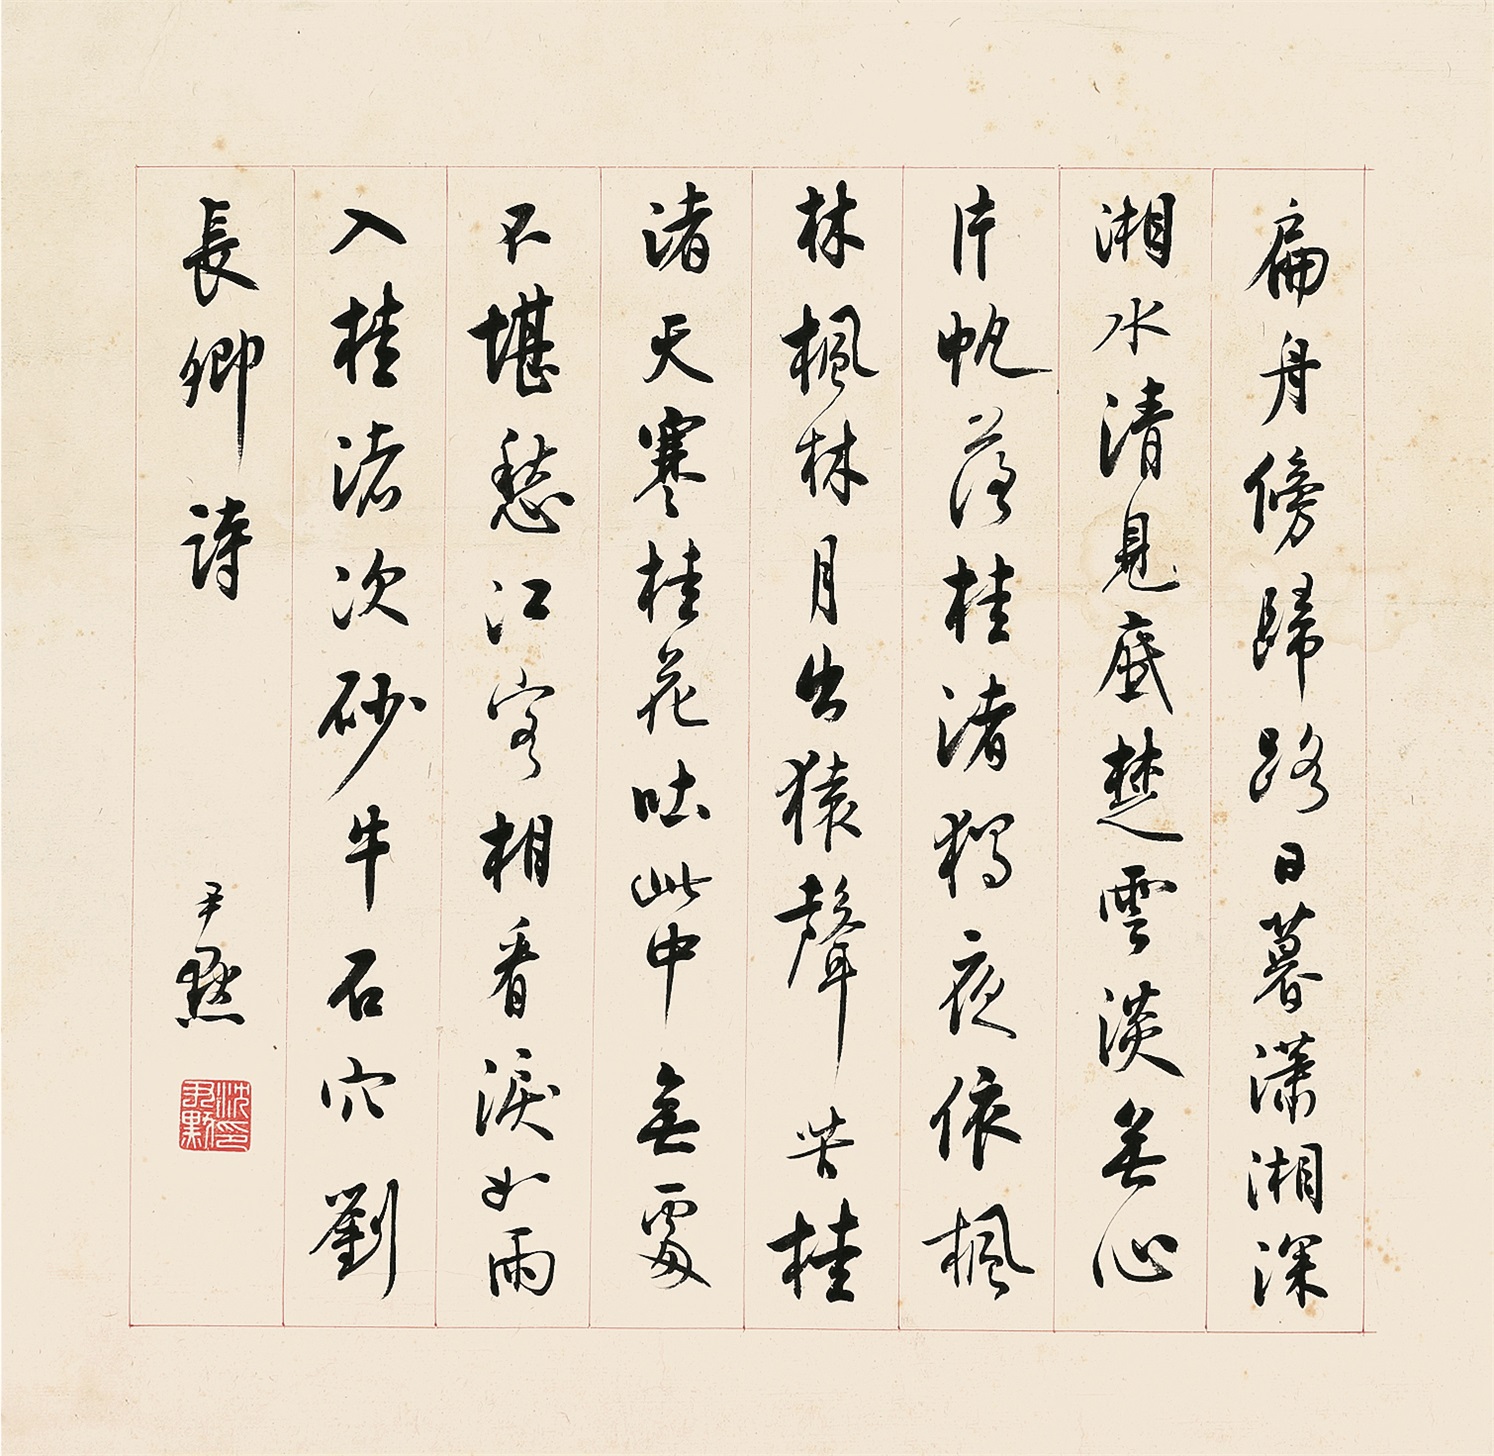 扁舟傍歸路日暮瀟湘深
湘水清見底楚雲淡無心
片帆落桂渚獨夜依楓
林楓林月出猿聲苦桂
渚天寒桂花吐此中無處
不堪愁江客相看淚如雨
入桂渚次砂牛石穴劉
長卿詩 尹默
沈尹默印